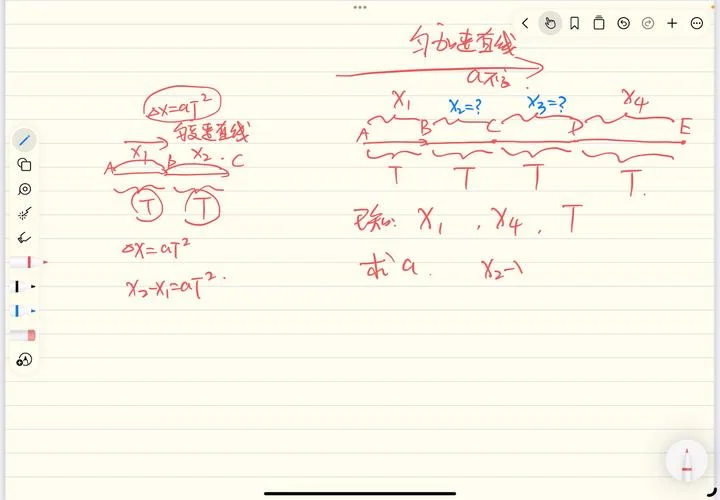 △x=aT²
匀变速直线
x₁ x₂
A B C
T T
△x=aT²
x₂-x₁=aT²
匀加速直线
a不变
x₁ x₂=? x₃=? x₄
A B C D E
T T T T
已知: x₁, x₄, T
求 a. x₂-